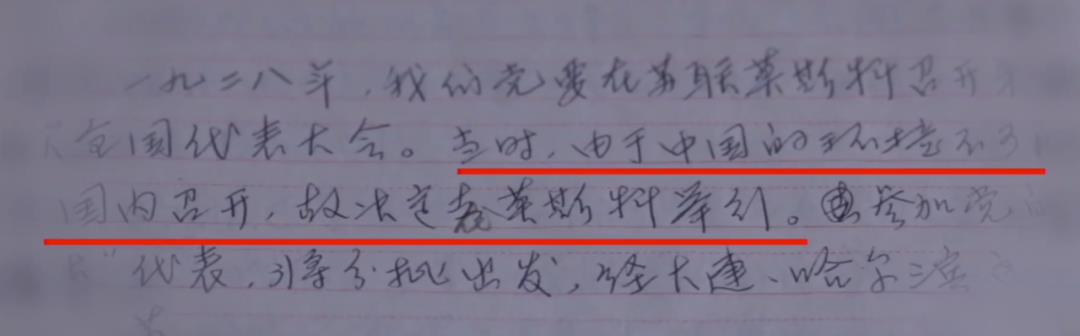 一九二八年，我们党要在苏联莫斯科召开
全国代表大会。当时，由于中国的环境不
国内召开，故决定莫斯科举行。参加党
代表，将分批出发，经大连、哈尔滨